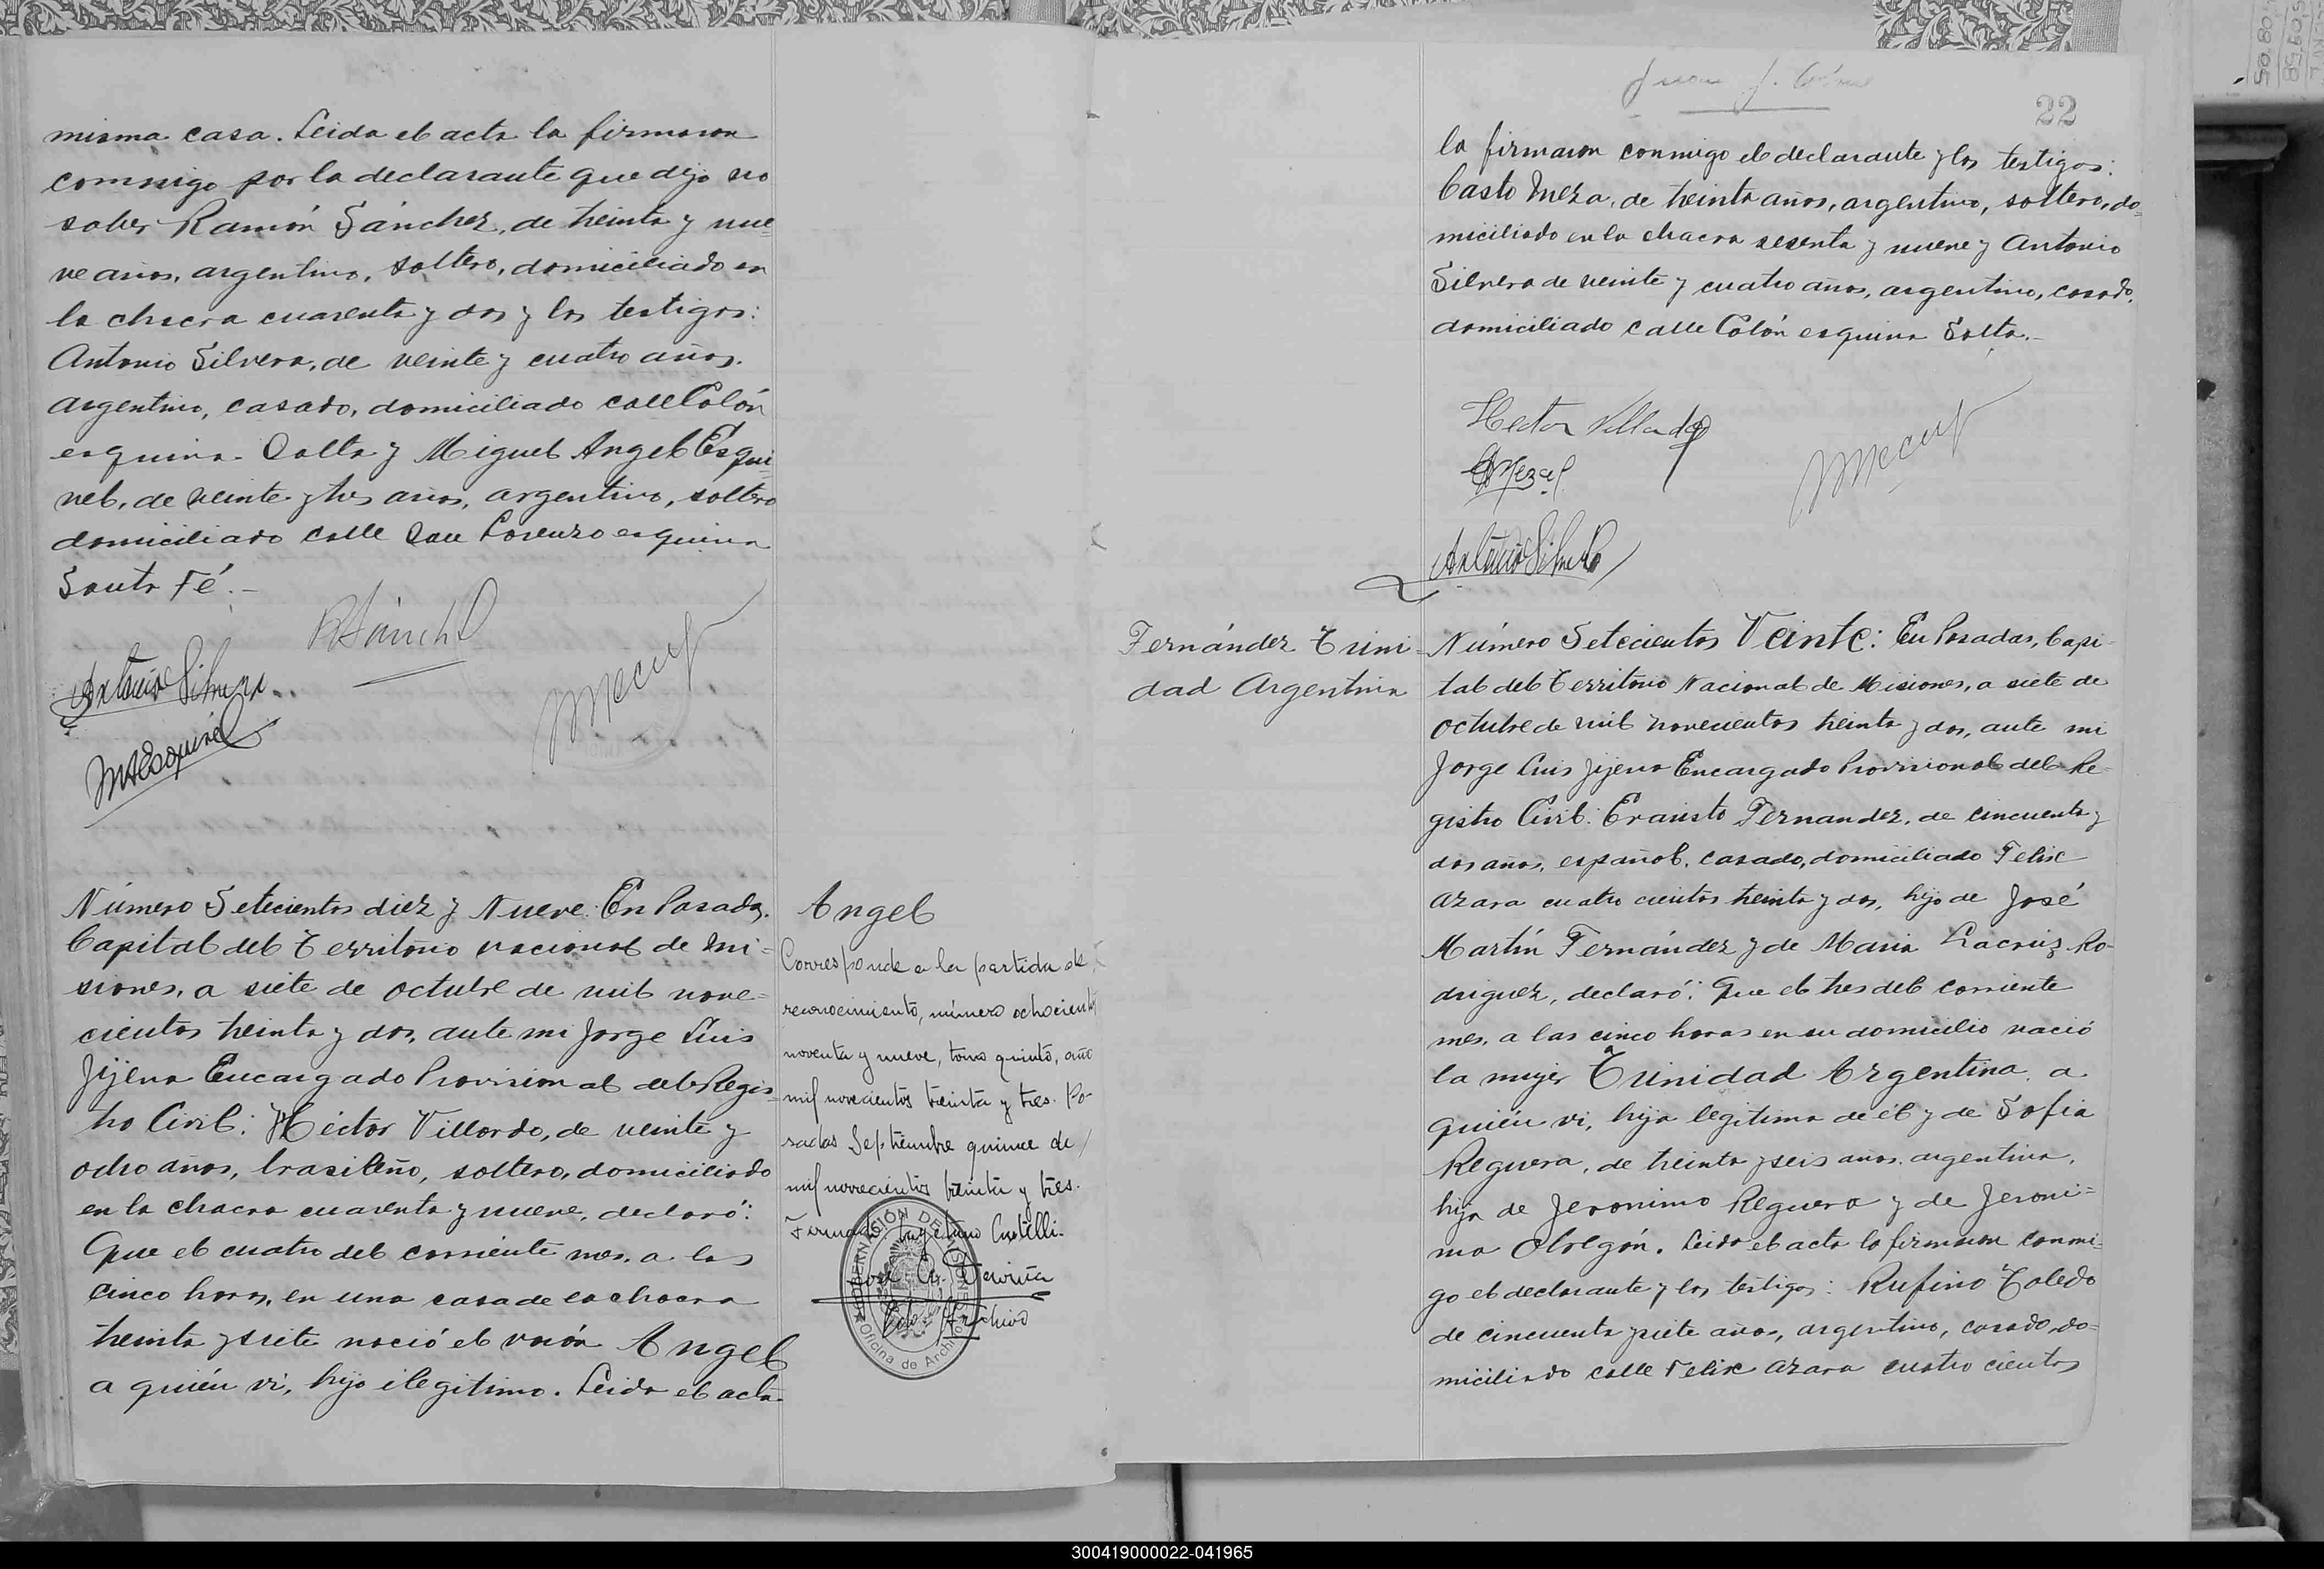 misma casa. Leida el acta la firmaron
conmigo por la declarante que dijo no
saber Ramón Sánchez, de treinta y nue=
ve años, argentino, soltero, domiciliado en
la chacra cuarenta y dos y los testigos:
Antonio Silvera, de veinte y cuatro años.
argentino, casado, domiciliado calle Colón
esquina Salta y Miguel Angel Esqui=
vel, de veinte y tres años, argentino, soltero
domiciliado calle San Lorenzo esquina
Santa Fé.-
RSánchez
Antonio Silvera
MAEsquivel
Número Setecientos diez y Nueve: En Posadas,
Capital del Territorio nacional de Mi=
siones, a siete de octubre de mil nove=
cientos treinta y dos, ante mi Jorge Luis
Jijena Encargado Provisional del Regis=
tro Civil: Héctor Villordo, de veinte y
ocho años, brasileño, soltero, domiciliado
en la chacra cuarenta y nueve, declaró:
Que el cuatro del corriente mes, a las
cinco horas, en una casa de la chacra
treinta y siete nació el varón Angel
a quién vi, hijo ilegitimo. Leida el acta
Angel
Corresponde a la partida de
reconocimiento, número ochocientos
noventa y nueve, tomo quinto, año
mil novecientos treinta y tres. Po-
sadas Septiembre quince de
mil novecientos treinta y tres.
Fernando Castelli.
Archivo
GOBERNACIÓN DE MISIONES
Oficina de Archivo
Juan J.
22
la firmaron conmigo el declarante y los testigos:
Casto Meza, de treinta años, argentino, soltero, do=
miciliado en la chacra sesenta y nueve y Antonio
Silvera de veinte y cuatro años, argentino, casado,
domiciliado calle Colón esquina Salta.-
Hector Villordo
CMeza
Antonio Silvera
Fernández Trini=
dad Argentina
Número Setecientos Veinte: En Posadas, Capi-
tal del Territorio Nacional de Misiones, a siete de
octubre de mil novecientos treinta y dos, ante mi
Jorge Luis Jijena Encargado Provisional del Re-
gistro Civil: Evaristo Fernandez, de cincuenta y
dos años, español, casado, domiciliado Felix
Azara cuatro cientos treinta y dos, hijo de José
Martín Fernández y de Maria Lacruz Ro-
driguez, declaró: Que el tres del corriente
mes, a las cinco horas en su domicilio nació
la mujer Trinidad Argentina, a
quién vi, hija legitima de él y de Sofia
Reguera, de treinta y seis años, argentina,
hija de Jeronimo Reguera y de Jeroni=
ma Obregón. Leida el acta la firmaron conmi-
go el declarante y los testigos: Rufino Toledo
de cincuenta y siete años, argentino, casado, do=
miciliado calle Felix Azara cuatro cientos
300419000022-041965